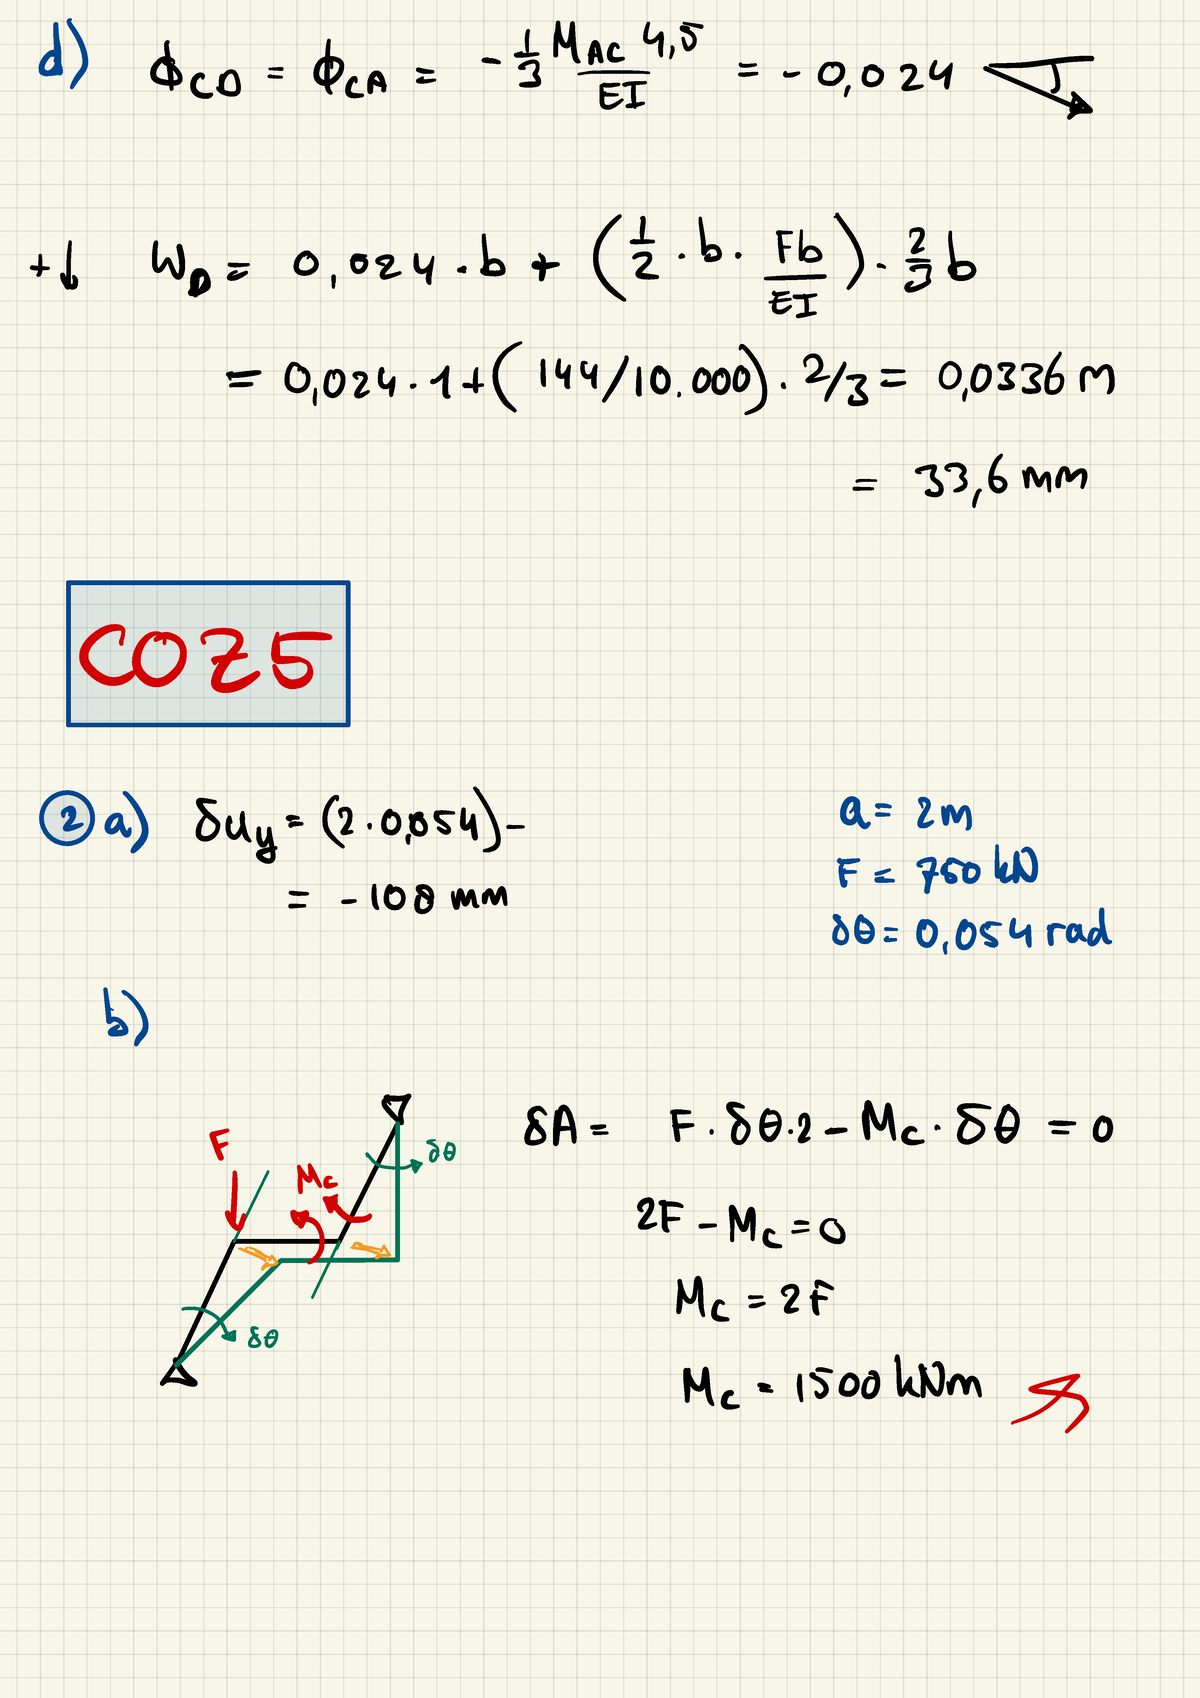 d) ϕCD = ϕCA = -1/3 MAC 4,5/EI = -0,024
+↓ WD = 0,024 · b + (1/2 · b · Fb/EI) · 2/3 b
= 0,024 · 1 + (144/10.000) · 2/3 = 0,0336 m
= 33,6 mm
COZ5
2 a) δuy = (2 · 0,054) -
= -108 mm
a = 2m
F = 750 kN
δθ = 0,054 rad
b)
F
Mc
δθ
δθ
δA = F · δθ · 2 - Mc · δθ = 0
2F - Mc = 0
Mc = 2F
Mc = 1500 kNm